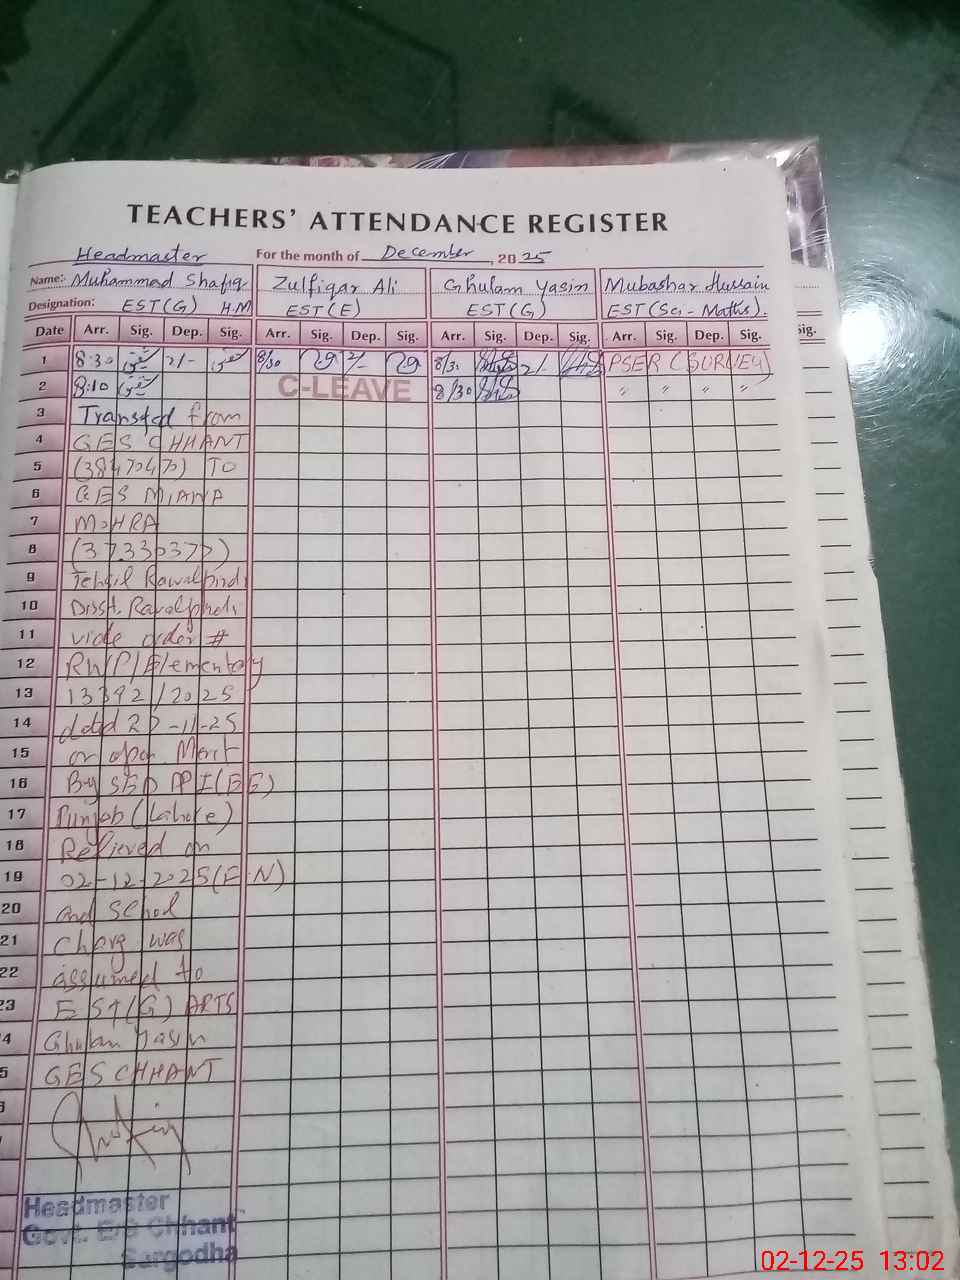 TEACHERS' ATTENDANCE REGISTER
Headmaster For the month of December, 2025
Name:- Muhammad Shafiq Zulfiqar Ali Ghulam Yasin Mubashar Hussain
Designation: EST(G) H.M EST(E) EST(G) EST(Sci - Maths).
Date Arr. Sig. Dep. Sig. Arr. Sig. Dep. Sig. Arr. Sig. Dep. Sig. Arr. Sig. Dep. Sig. Sig.
1 8:30 2/- 8/30 2/- 8/3. 2/- PSER (SURVEY)
2 8:10 C-LEAVE 8/30 " " " "
3 Transted from
4 GES CHHANT
5 (3847047) TO
6 GES MIANA
7 MOHRA
8
9 Tehsil Rawalpindi
10 Disst. Rawalpindi
11 vide order #
12 RWP/Elementary
13 13392/2025
14 dated 27-11-25
15 on open Merit
16 By SED DPI(EE)
17 Punjab (Lahore)
18 Relieved on
19 02-12-2025(F.N)
20 and School
21 Charg was
22 assumed to
23 EST(G) ARTS
4 Ghulam Yasin
5 GES CHHANT
Headmaster
Govt. E/S Chhant
Sargodha
02-12-25 13:02